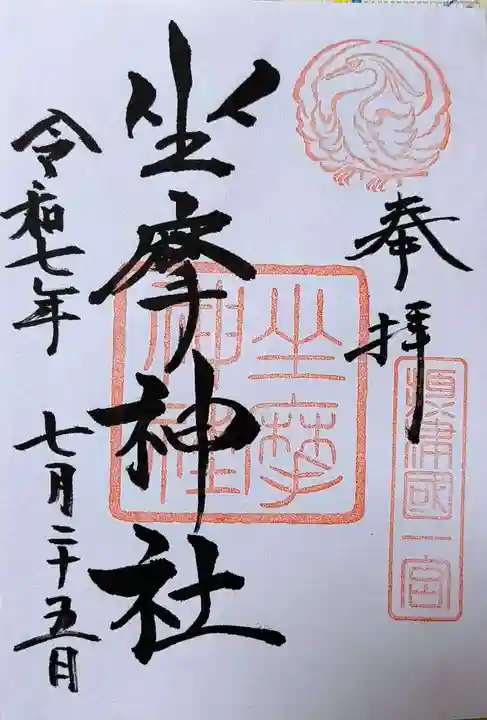 奉拝
摂津國一宮
坐摩神社
坐摩
神社
令和七年 七月二十五日